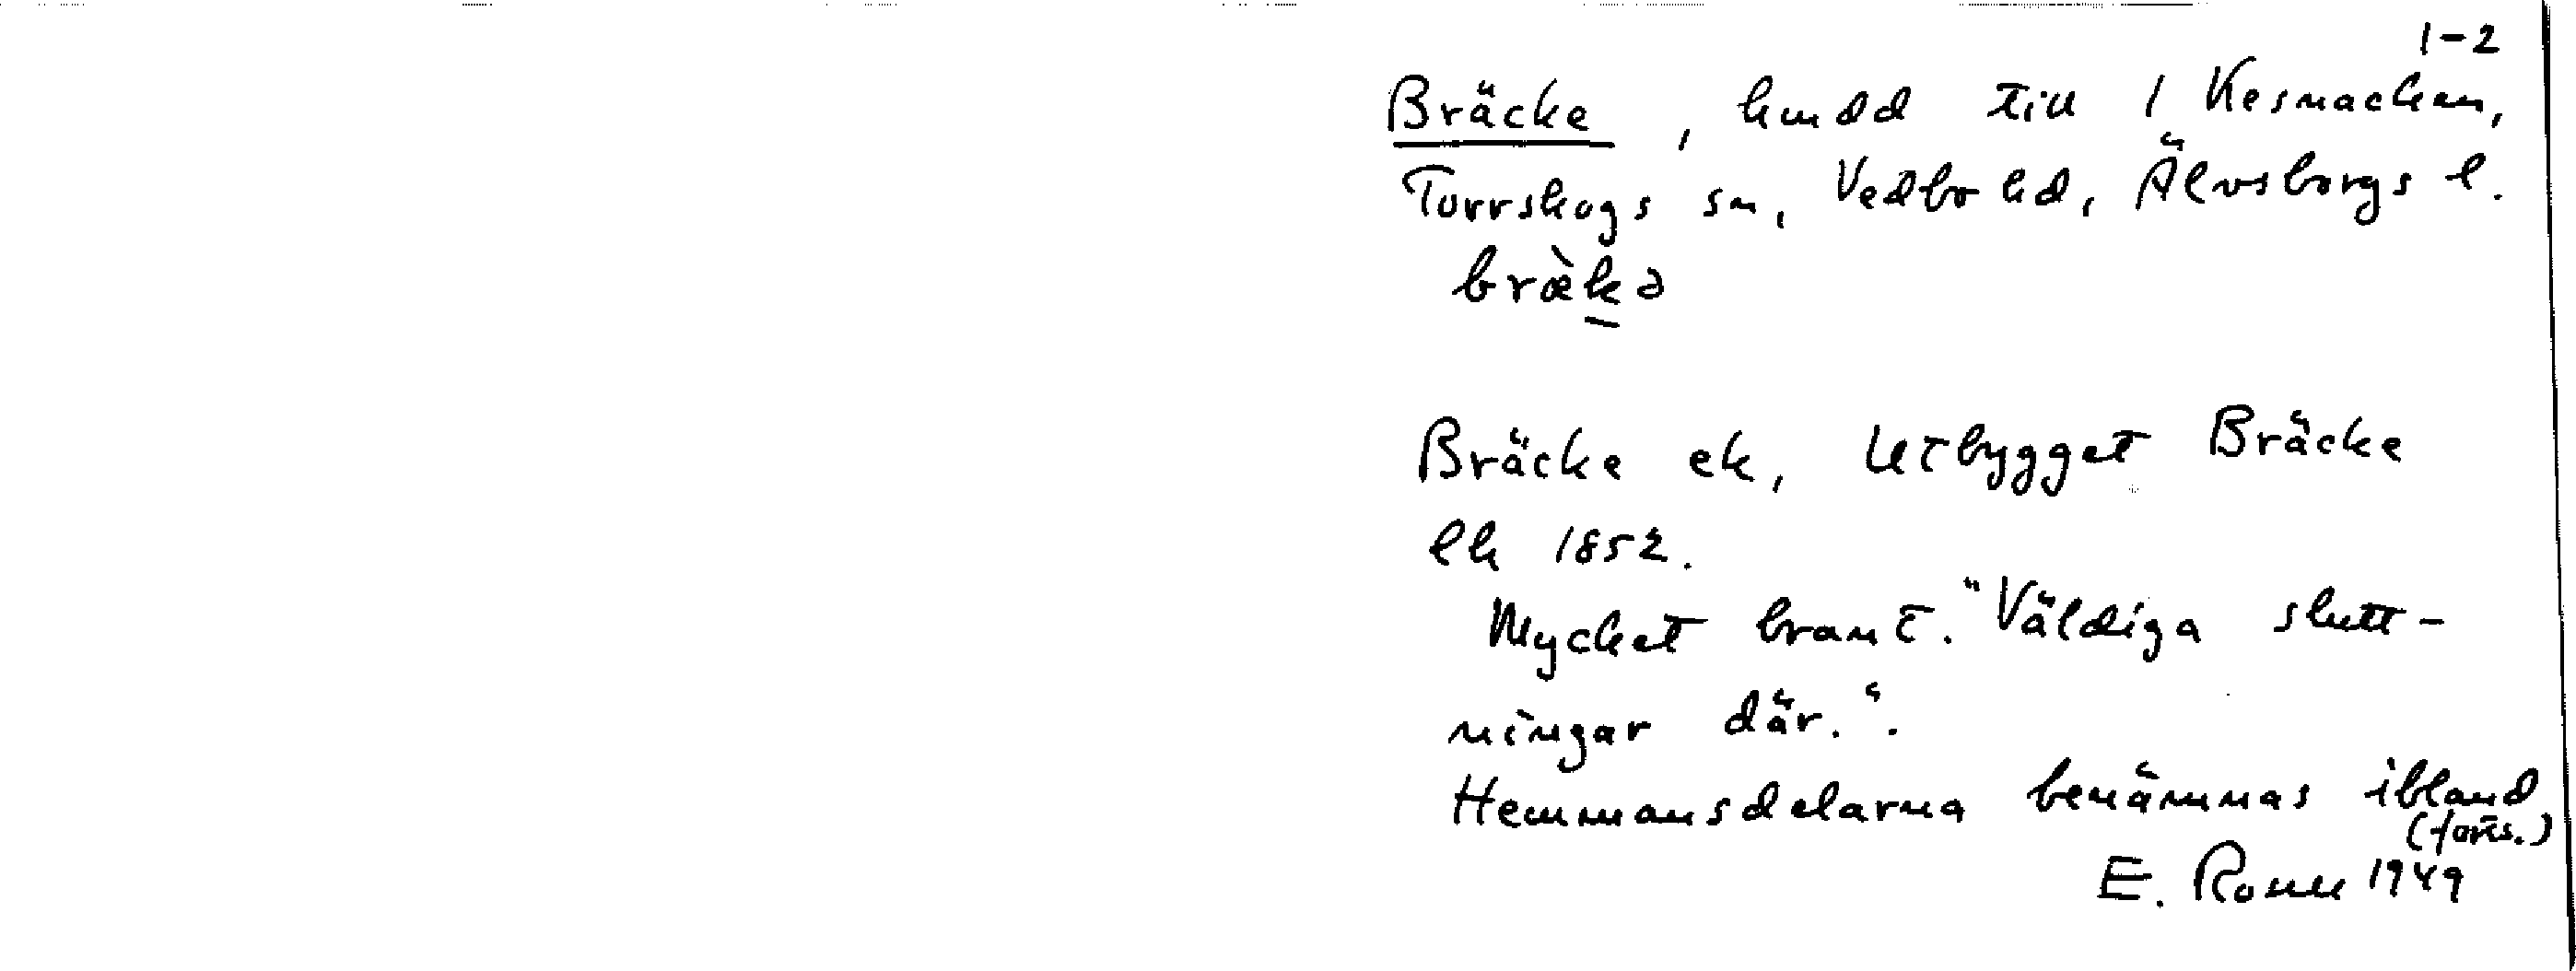 1-2
Bräcke, hmdd till 1 Kesnacken,
Torrskogs sn, Vedbo hd, Älvsborgs l.
bræ̀kə
Bräcke ek, Utbygget Bräcke
lk 1852.
Mycket brant. "Väldiga slutt-
ningar där.".
Hemmansdelarna benämnas ibland
(forts.)
E. Rosell 1949